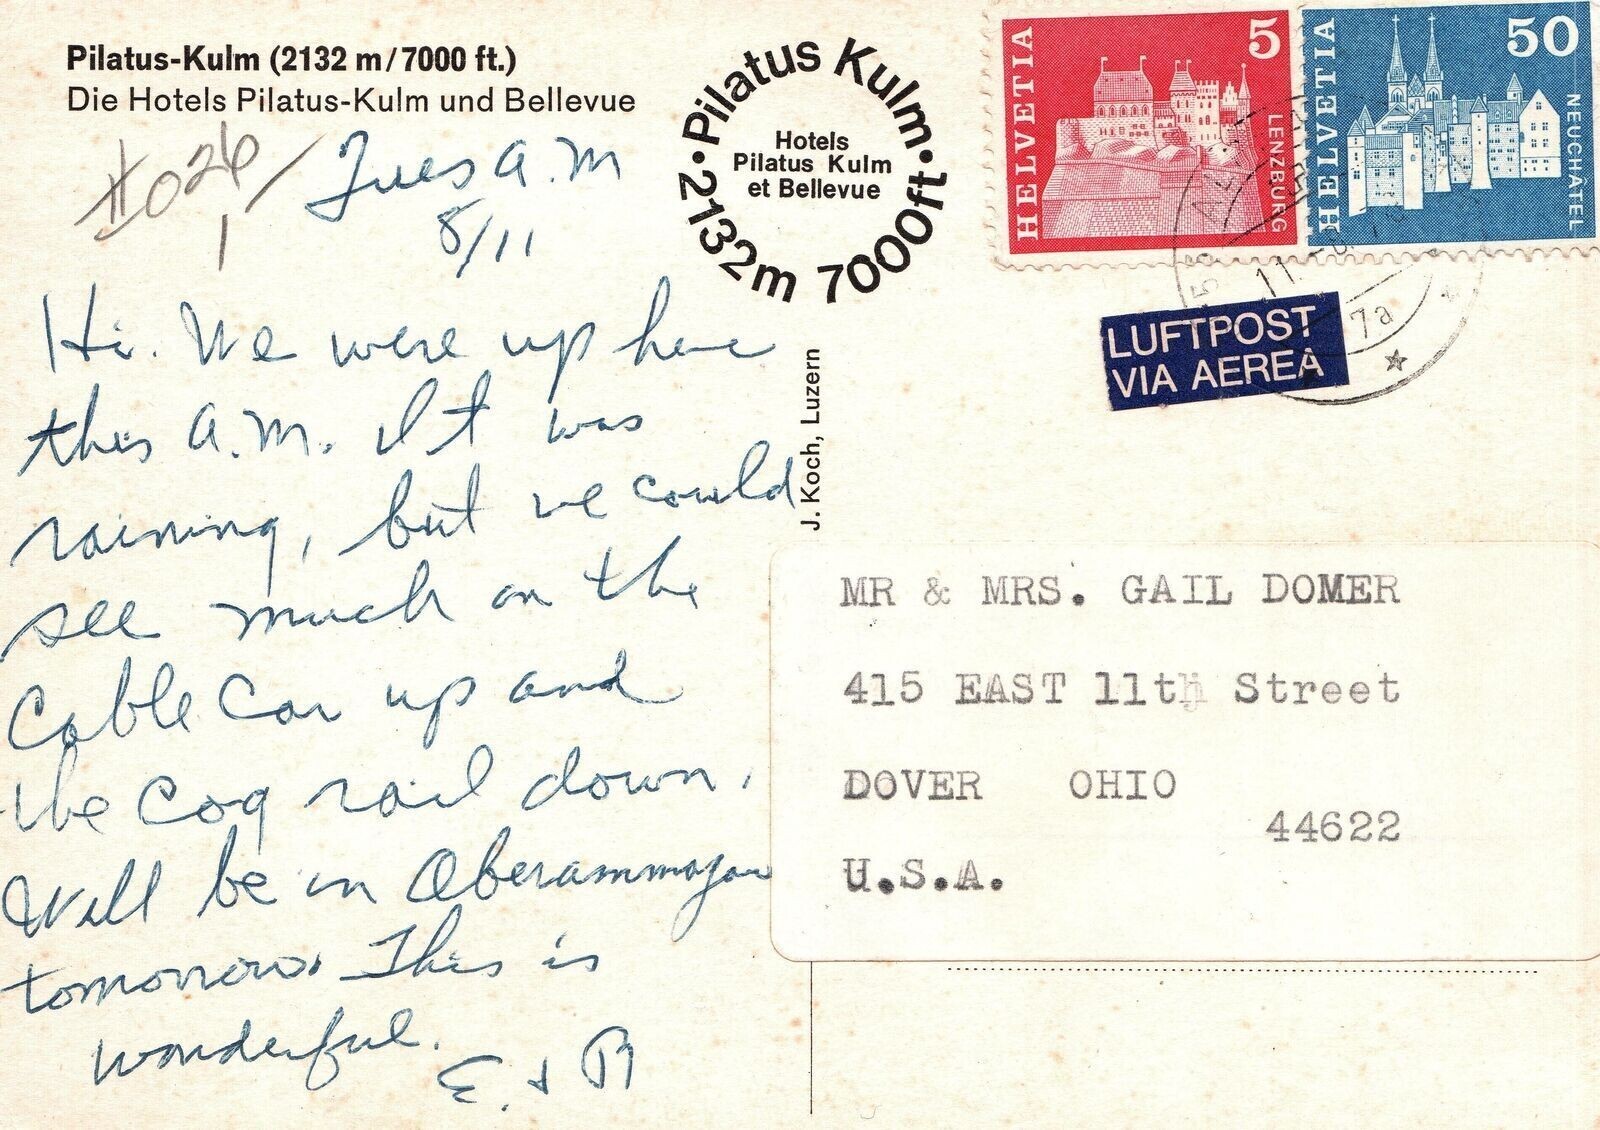 Pilatus-Kulm (2132 m/7000 ft.)
Die Hotels Pilatus-Kulm und Bellevue
Tues A.M
8/11
Hi. We were up here
this A.M. It was
raining, but we could
see much on the
Cable Car up and
the Cog rail down.
Will be in Oberammagau
tomorrow. This is
wonderful.
E. + B
• Pilatus Kulm •
2132m 7000ft
Hotels
Pilatus Kulm
et Bellevue
J. Koch, Luzern
HELVETIA
5
LENZBURG
HELVETIA
50
NEUCHÂTEL
11
7a
LUFTPOST
VIA AEREA
MR & MRS. GAIL DOMER
415 EAST 11th Street
DOVER OHIO
44622
U.S.A.